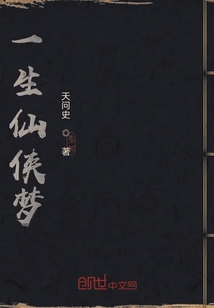 一生仙侠梦
天问史
著
创世中文网